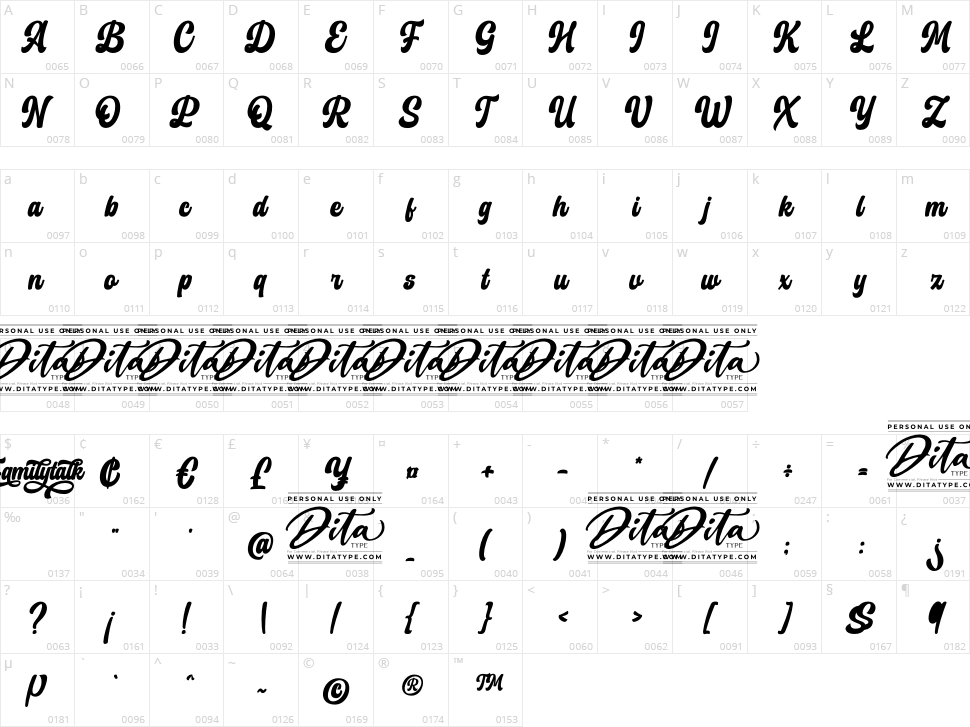 A B C D E F G H I J K L M
A B C D E F G H I J K L M
0065 0066 0067 0068 0069 0070 0071 0072 0073 0074 0075 0076 0077
N O P Q R S T U V W X Y Z
N O P Q R S T U V W X Y Z
0078 0079 0080 0081 0082 0083 0084 0085 0086 0087 0088 0089 0090
a b c d e f g h i j k l m
a b c d e f g h i j k l m
0097 0098 0099 0100 0101 0102 0103 0104 0105 0106 0107 0108 0109
n o p q r s t u v w x y z
n o p q r s t u v w x y z
0110 0111 0112 0113 0114 0115 0116 0117 0118 0119 0120 0121 0122
PERSONAL USE ONLY
Dita Dita Dita Dita Dita Dita Dita Dita Dita Dita
TYPE
WWW.DITATYPE.COM
0048 0049 0050 0051 0052 0053 0054 0055 0056 0057
PERSONAL USE ONLY
$ ¢ € £ ¥ ¤ + - * / ÷ =
Familytalk ¢ € £ ¥ ¤ + - * / ÷ = Dita
WWW.DITATYPE.COM
0036 0162 0128 0164 0043 0247 0061 0037
PERSONAL USE ONLY PERSONAL USE ONLY
‰ " ' @ ( ) : ¿
" ' @ Dita _ ( ) Dita Dita ; : ¿
TYPE TYPE
WWW.DITATYPE.COM WWW.DITATYPE.COM WWW.DITATYPE.COM
0137 0034 0039 0064 0038 0095 0040 0041 0044 0046 0059 0058 0191
? ¡ ! \ | { } < > [ ] § ¶
? ¡ ! \ | { } < > [ ] § ¶
0063 0161 0033 0092 0124 0123 0125 0060 0062 0091 0093 0167 0182
µ ` ^ ~ © ® ™
µ ` ^ ~ © ® ™
0181 0096 0094 0126 0169 0174 0153